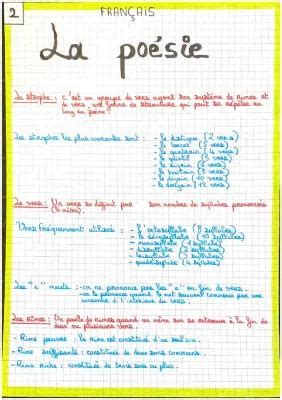 2
FRANÇAIS
La poésie
La strophe : c'est un groupe de vers ayant son système de rimes et
de vers, une forme de structure qui peut se répéter au
long du poème.
Les strophes les plus courantes sont : - le distique (2 vers)
- le tercet (3 vers)
- le quatrain (4 vers)
- le quintil (5 vers)
- le sizain (6 vers)
- le huitain (8 vers)
- le dizain (10 vers)
- le douzain (12 vers)
Le vers : Un vers se définit par son nombre de syllabes prononcées
Vers fréquemment utilisés : - l'octosyllabe (8 syllabes)
- le décasyllabe (10 syllabes)
- monosyllabe (1 syllabe)
- dissyllabe (2 syllabes)
- trisyllabe (3 syllabes)
- quadrisyllabe (4 syllabes)
Les "e" muets : - on ne prononce pas les "e" en fin de vers.
- on le prononce quand le mot suivant commence par une
consonne à l'intérieur du vers.
Les rimes : On parle de rimes quand un même son se retrouve à la fin de
deux ou plusieurs vers.
- Rime pauvre : la rime est constituée d'un seul son.
- Rime suffisante : constituée de deux sons communs.
- Rime riche : constituée de trois sons ou plus.